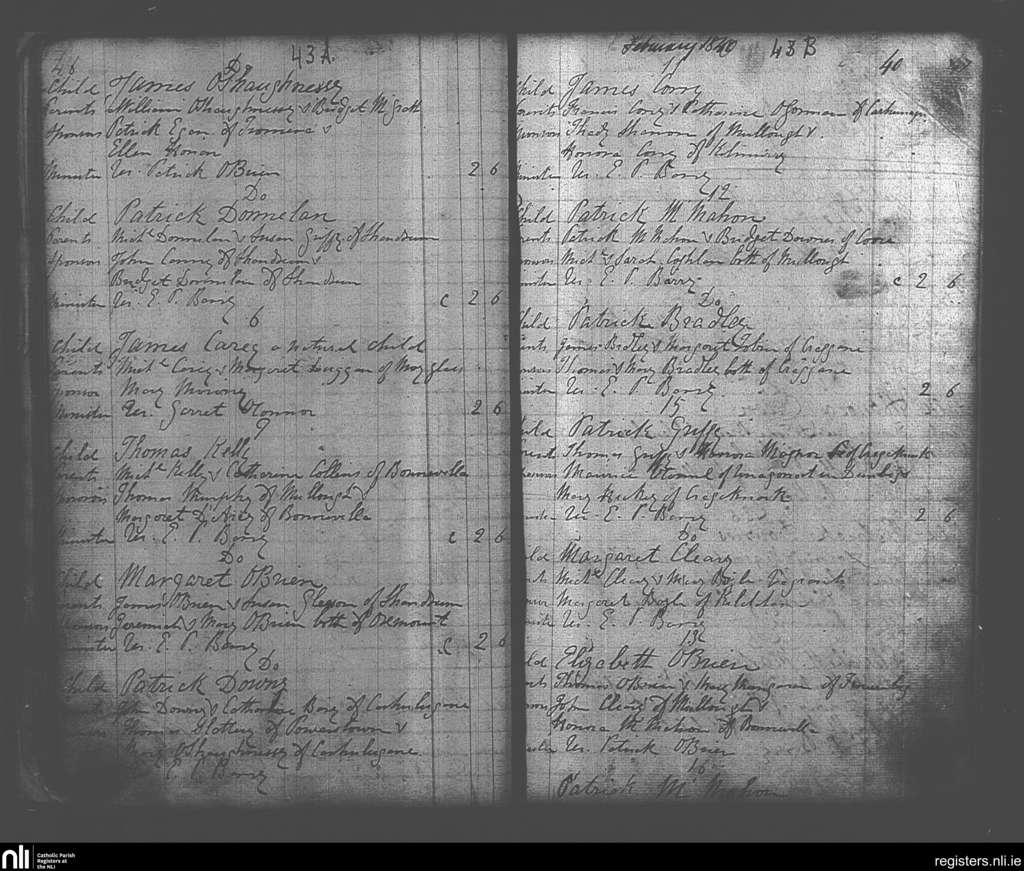 46
43A.
Do
Child James OShaughnessy
Parents William OShaughnessy & Bridget Migrath
Sponsors Patrick Egan of &
Ellen Honan
Minister Vr. Patrick OBrien 2 6
Do
Child Patrick Donnelan
Parents Mich.l Donnelan & Susan Griffy of Shandrum
Sponsors John Conny of Shandrum &
Bridget Donnelan of Shandrum
Minister Vr. E. P. Barry c 2 6
6
Child James Carey a natural child
Parents Mich.l Carey & Margaret Duggan of Moyglass
Sponsor Mary Moroney
Minister Vr. Garret OConnor 2 6
9
Child Thomas Kelly
Parents Mich.l Kelly & Catharine Collens of Bonnavilla
Sponsors Thomas Murphy of Mullought &
Margaret D'Arcy of Bonnavilla
Minister Vr. E. P. Barry c 2 6
Do
Child Margaret OBrien
Parents James OBrien & Susan Gleeson of Shandrum
Sponsors Jeremiah & Mary OBrien both of Dromount
Minister Vr. E. P. Barry c 2 6
Do
Child Patrick Downs
John Downs & Catharine Barry of
Thomas Slattery of Powerstown &
Mary OShaughnessy of
E. P. Barry
February 1840
43B
40
11
Child James Corry
Parents Francis Corry & Catharine OGorman of
Sponsors Thady Shannon of Mullought &
Honora Corry of Kilmurry
Minister Vr. E. P. Barry
12
Child Patrick M Mahon
Parents Patrick M Mahon & Bridget Downes of Coore
Sponsors Mich.l & Sarah Coghlan both of Mullought
Minister Vr. E. P. Barry c 2 6
Do
Child Patrick Bradley
Parents James Bradley & Margaret Tobin of Craggane
Sponsors Thomas & Mary Bradley both of Craggane
Minister Vr. E. P. Barry 2 6
15
Child Patrick Griffy
Parents Thomas Griffy & Honora of Cragaknock
Maurice of
Mary Hickey of Cragaknock
Vr. E. P. Barry 2 6
Do
Child Margaret Cleary
Mich.l Cleary & Mary Boyle
Margaret Boyle of
Vr. E. P. Barry
13
Child Elizabeth OBrien
Thomas OBrien & Mary Mangan of
John Cleary of Mullought &
Honora M Mahon of Bonnavilla
Vr. Patrick OBrien
16
Patrick M Mahon
nli
Catholic Parish
Registers at
the NLI
registers.nli.ie